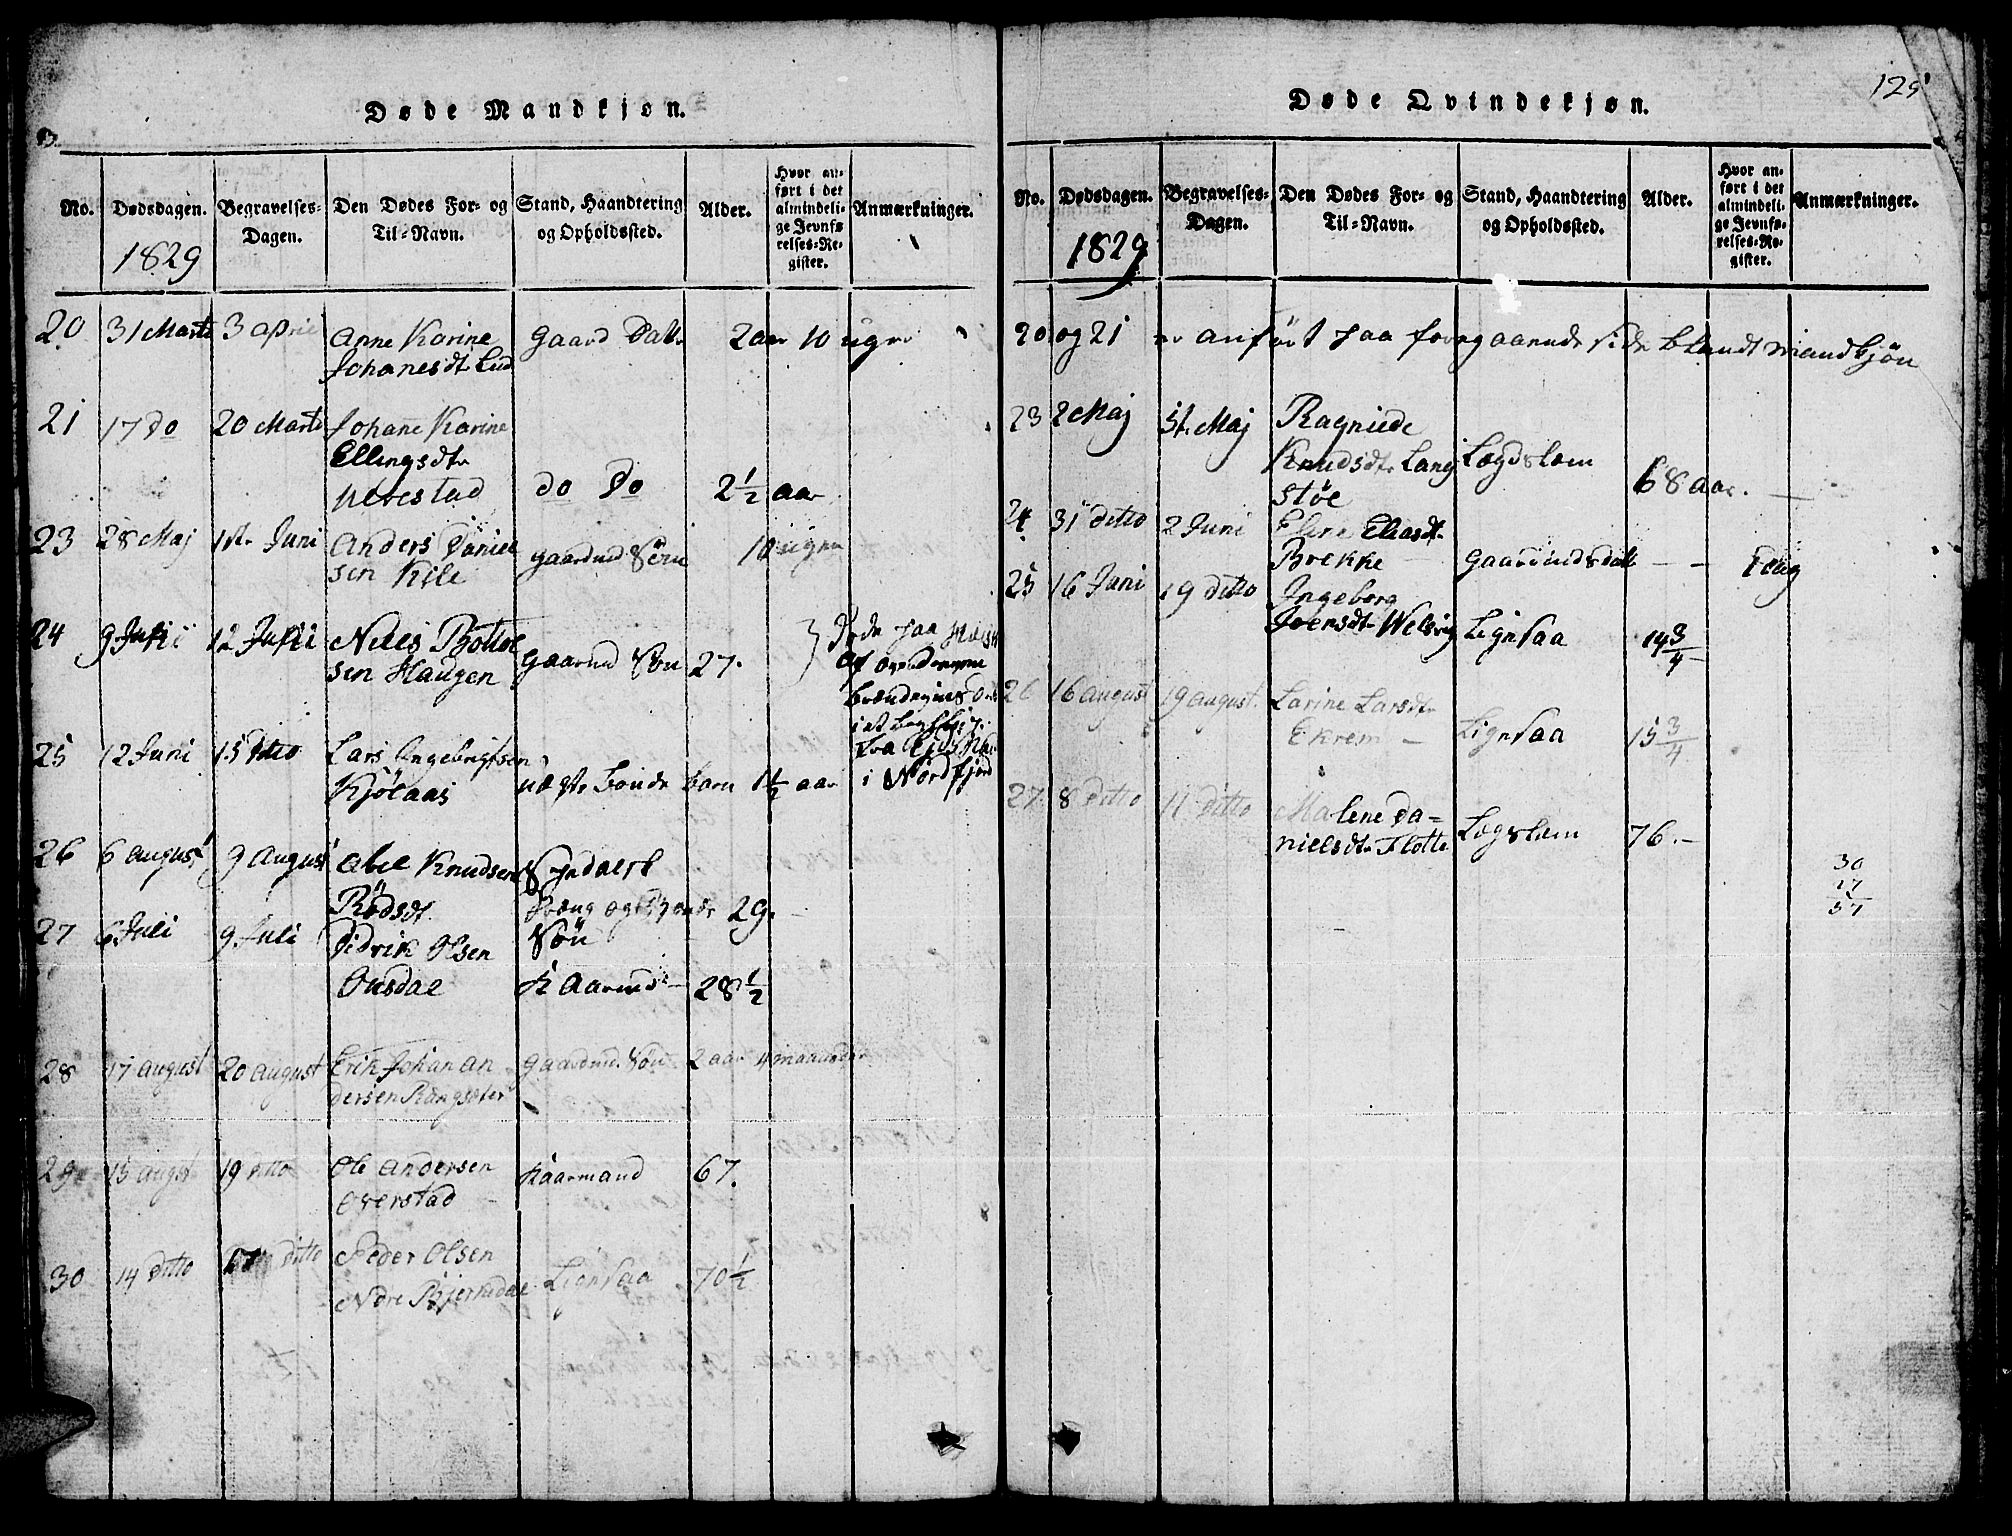 Døde Mandkjøn.
No.
Dødsdagen.
1829
Begravelses-
Dagen.
Den Dødes For- og
Til-Navn.
Stand, Haandtering
og Opholdssted.
Alder.
Hvor an-
ført i det
almindeli-
ge Jevnfø-
relses-Re-
gister.
Anmærkninger.
20 31 Marts 3 april Anne Karine Gaard Datt. 2 aar 10 uger
Johanesdt Lud
21 17 do 20 Marts Johane Karine
Ellingsdtr
do do 2½ aar
23 28 Maj 1ste Juni Anders Daniel
sen Kile gaardmd Sön 10 ugen
24 9 12 Niels Bottol
sen Haugen Gaarmd Sön 27.
Døde paa
af
i Nordfjord
25 12 Juni 15 ditto Lars Ingebrigtsen
Kjölaas Bonde barn 1½ aar
26 6 august 9 August Abel Knudsen
Rödsdt. 29.
Sön
27 6 Juli 9 Juli Didrik Olsen
Ousdal Kaarmd 28½
28 17 august 20 august Erik Johan an gaardmd. Sön 2 aar 4 maaneder
dersen Rangsæter
29 15 augst 19 ditto Ole Andersen Kaarmand 67.
Överstad
30 14 ditto 17 ditto Peder Olsen
Ndre Bjerkedal Lignsaa 70½
Døde Qvindekjøn.
125
No.
Dødsdagen.
1829
Begravelses-
Dagen.
Den Dødes For- og
Til-Navn.
Stand, Haandtering
og Opholdssted.
Alder.
Hvor an-
ført i det
almindeli-
ge Jevnfø-
relses-Re-
gister.
Anmærkninger.
20 og 21 er anfört paa foregaaende side blandt mandkjön
23 2 Maj 5te Maj Ragniede
Knudsdtr Lang Lægdslem 68 aar.
støe
24 31 ditto 2 Juni Elen Eliasdt.
Brekke gaarmdsdatt 1 dag
25 16 Juni 19 ditto Ingeborg
Joensdtr Welsvig Lignsaa 14¾
26 16 august 19 august. Larine Larsdtr
Ekrem Lignsaa 15¾
27 8 ditto 11 ditto Malene Da=
nielsdtr Flotte Lægslem 76.-
30
27
57